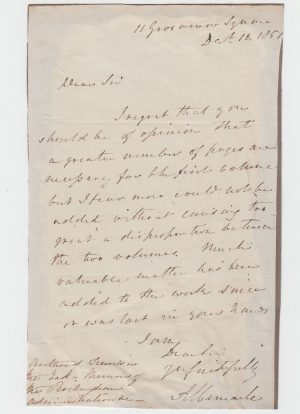 11 Grosvenor Square
Oct. 10. 1851
Dear Sir
I regret that you
should be of opinion that
a greater number of pages are
necessary for the first volume
but I fear more could not be
added without causing too
great a disproportion between
the two volumes. Much
valuable matter has been
added to the work since
it was last in your hands
I am
Dear Sir
Yrs faithfully
Albemarle
Author of
the Memoirs of
the Rockingham
Administration &c